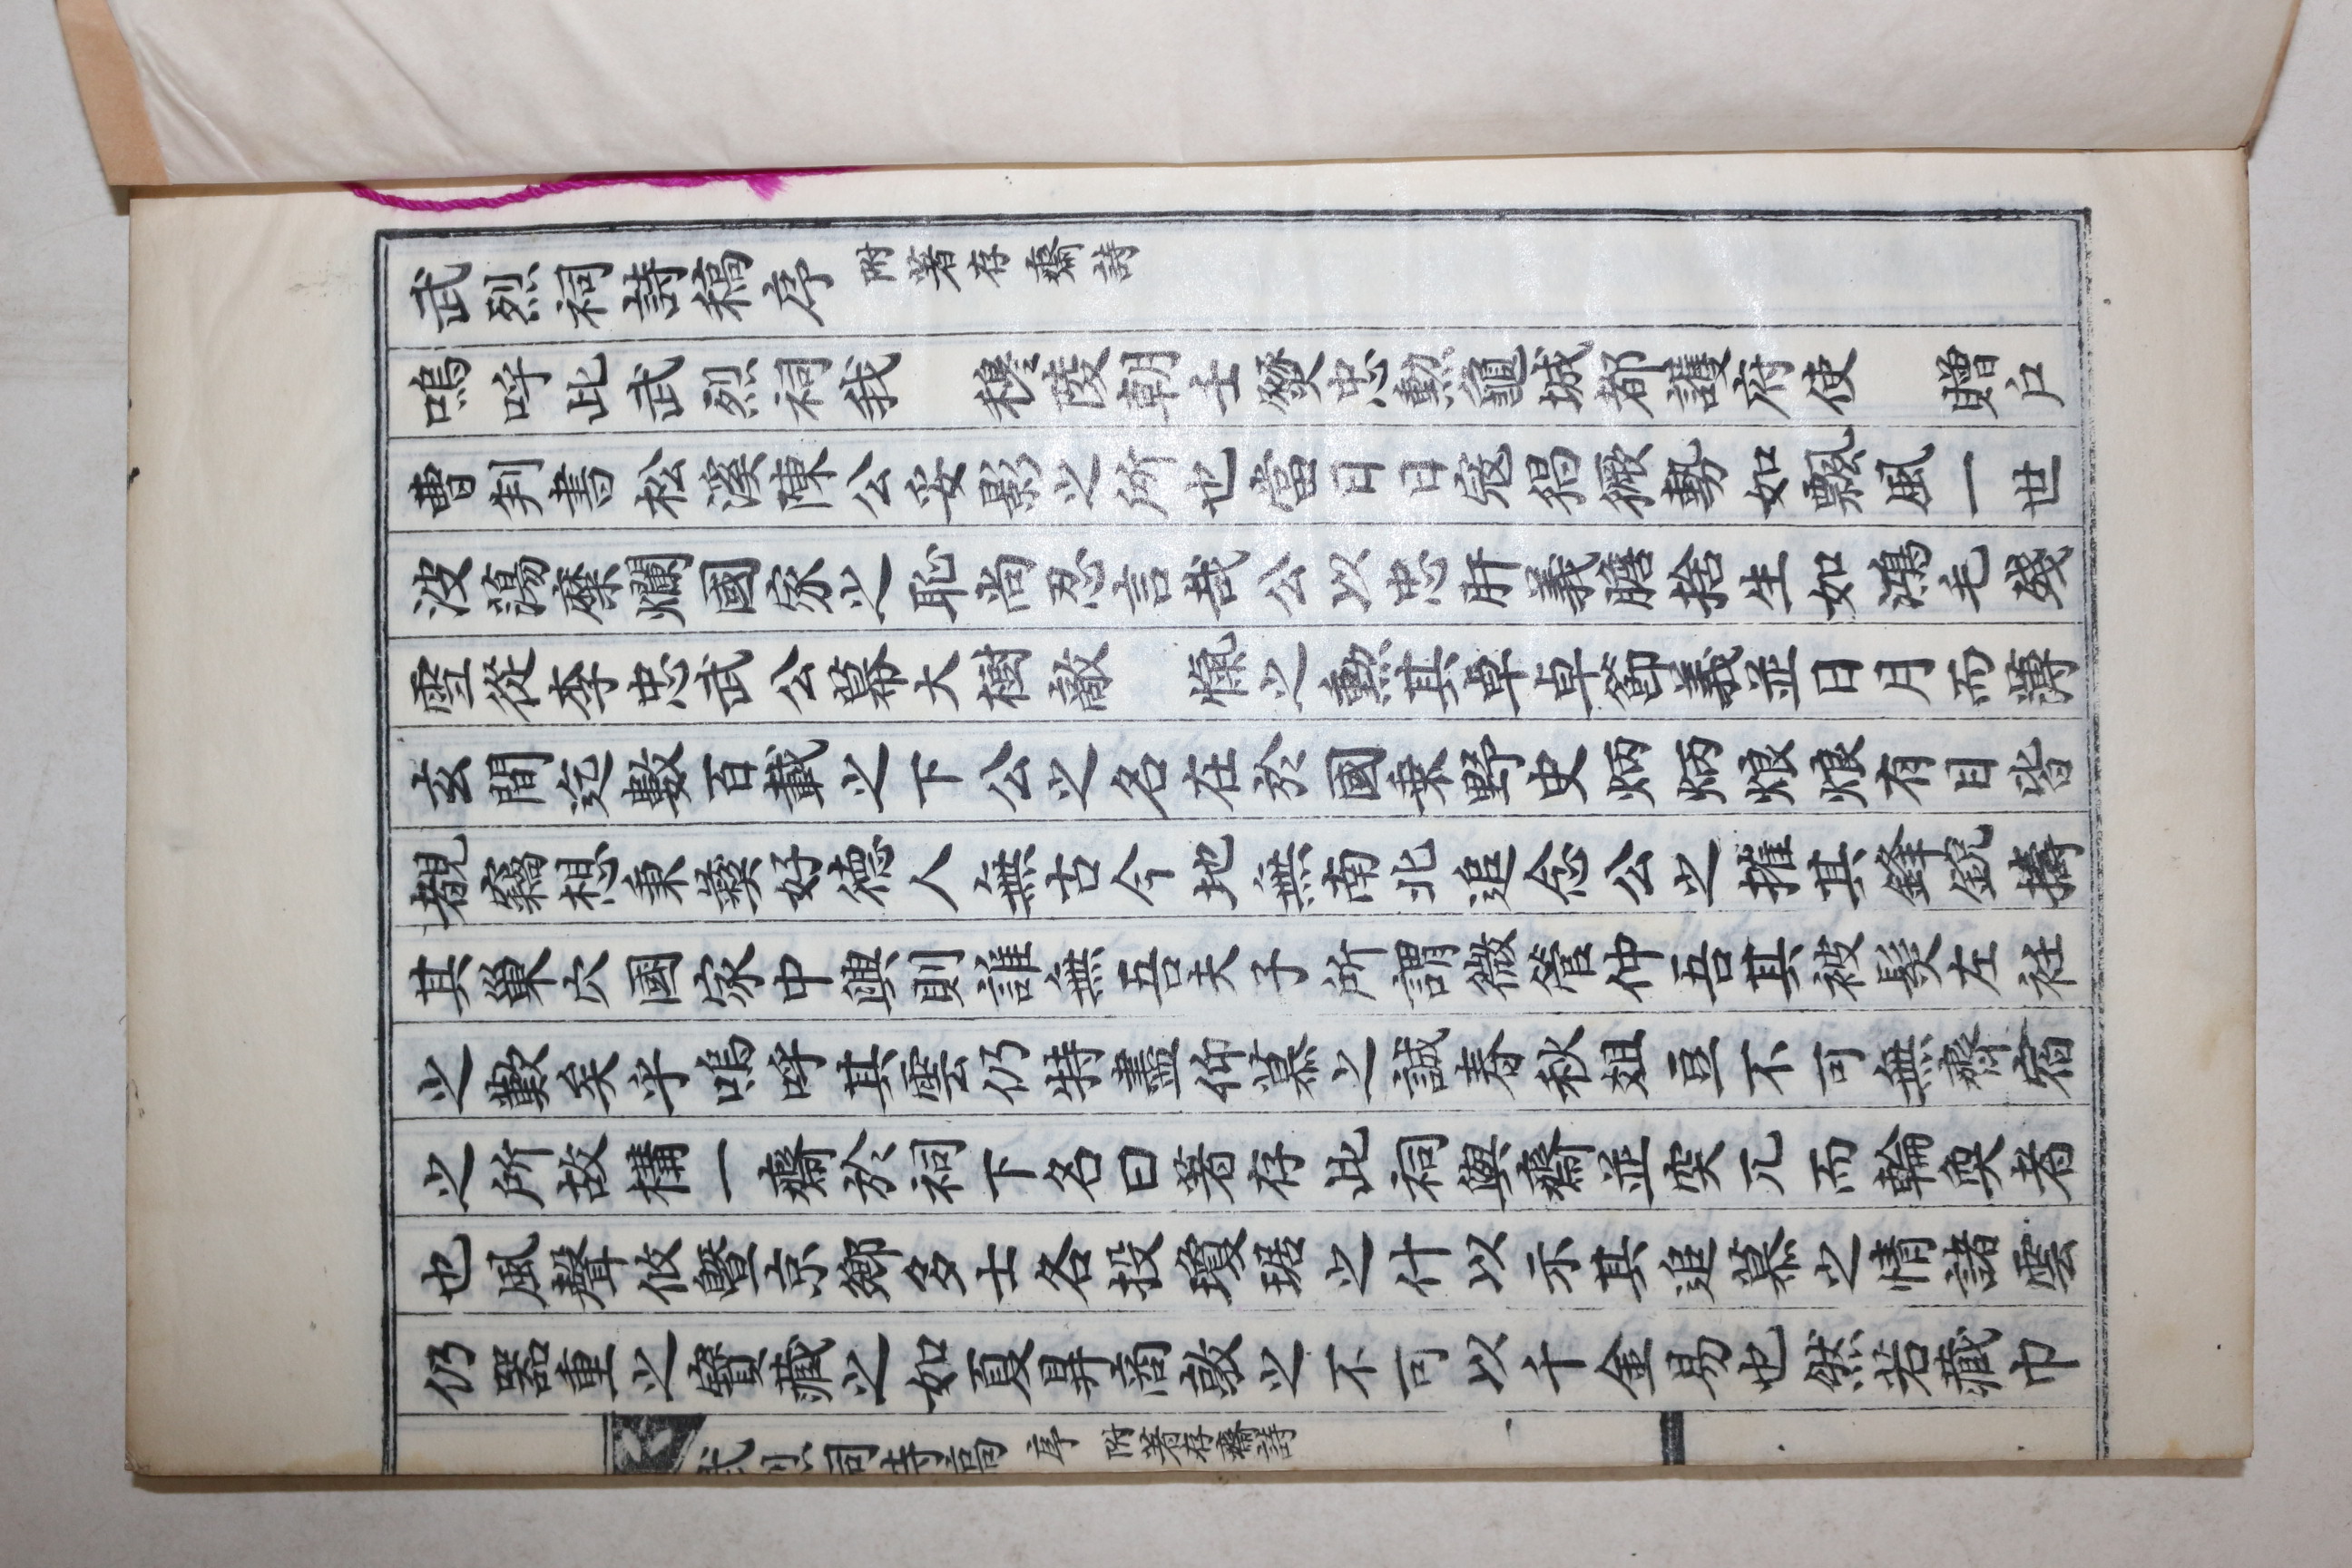 武烈祠詩稿序 附著存齋詩
嗚呼此武烈祠我 穆陵朝士發忠勲龜城都護府使 贈戶
曹判書松溪陳公妥影之所也當日日寇猖獗勢如飄風一世
波蕩糜爛國家之恥尚忍言哉公以忠肝義膽捨生如鴻毛殘
壘從李忠武公幕大樹敵 愾之勲其卓卓節義並日月而薄
玄間迄數百載之下公之名在於國乘野史炳炳烺烺有目皆
覩竊想秉彛好德人無古今地無南北追念公之摧其鋒銳擣
其巢穴國家中興則誰無吾夫子所謂微管仲吾其被髮左衽
之歎矣乎嗚呼其雲仍特盡仰慕之誠春秋俎豆不可無齋宿
之所故構一齋於祠下名曰著存此祠與齋並突兀而輪奐者
也風聲攸曁京鄉多士各投瓊琚之什以示其追慕之情諸雲
仍器重之寶藏之如夏鼎商敦之不可以千金易也然若藏巾
武烈祠詩稿 序 附著存齋詩